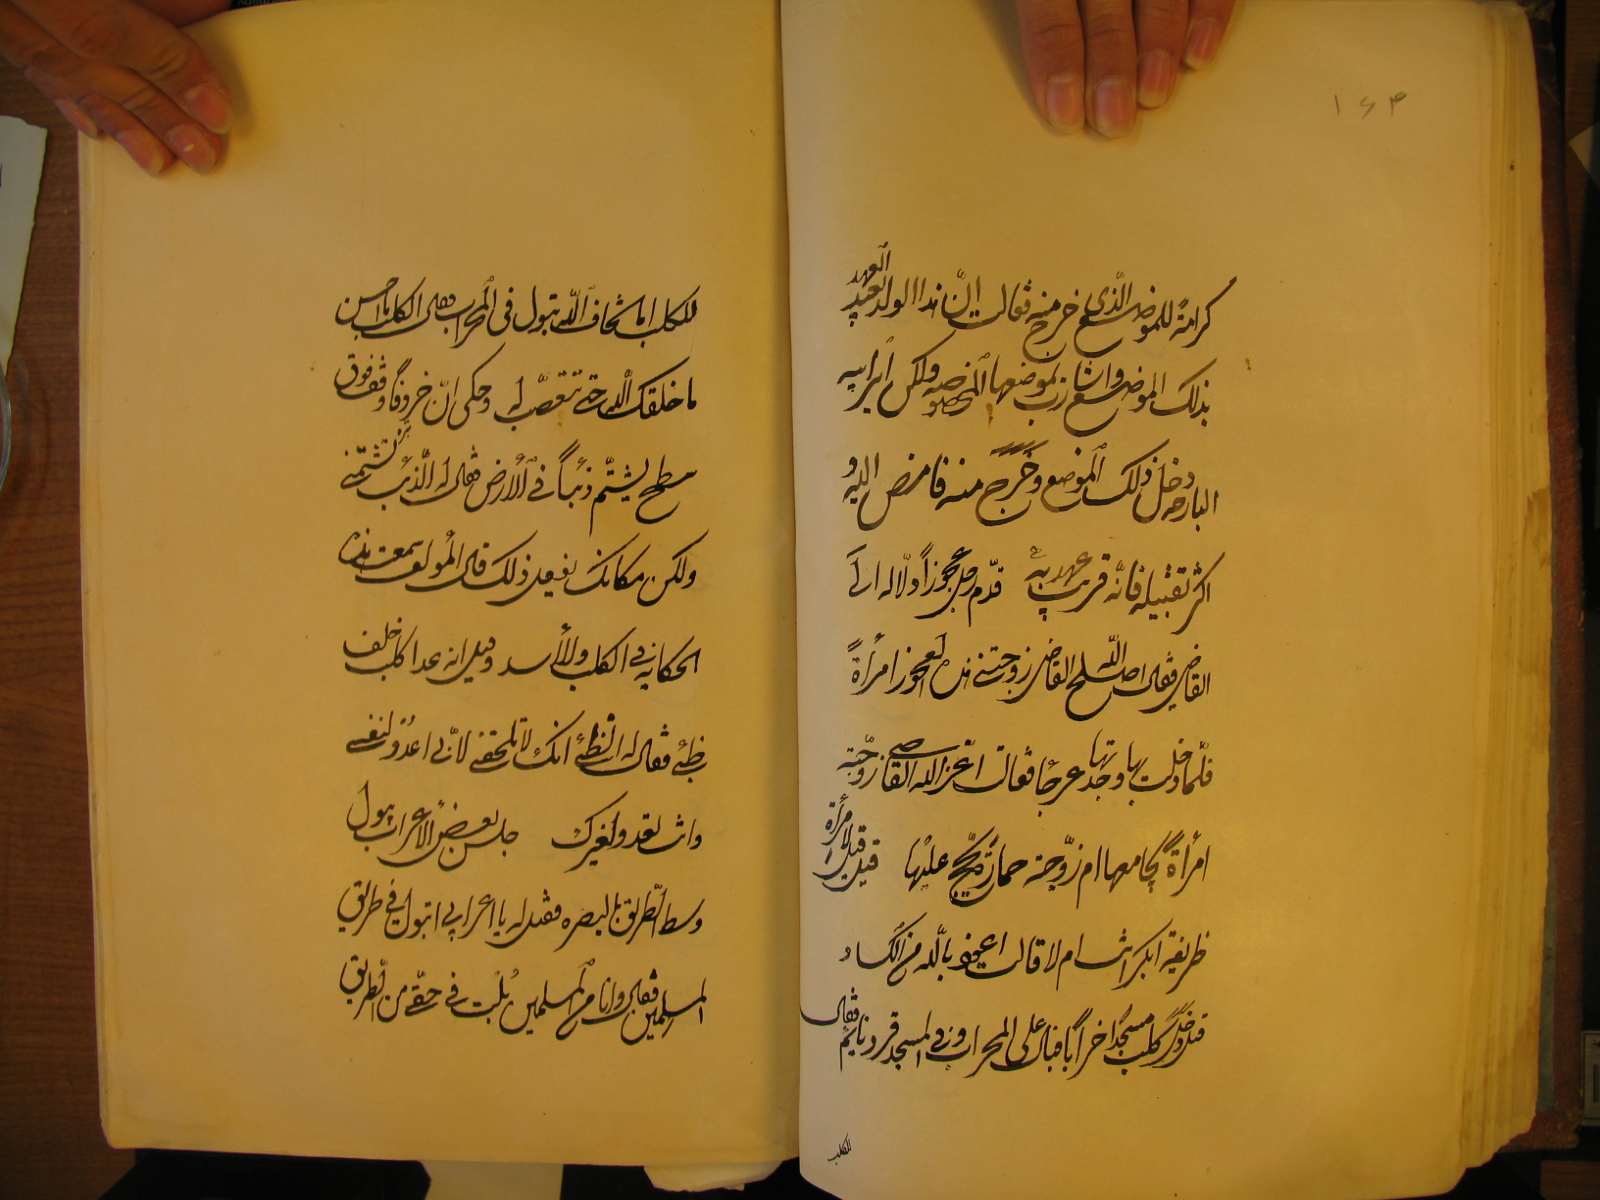 ۱۶۴
كرامةً للموضع الّذي خرج منه فقالت انّ هذا الولد العهد بعيد
بذلك الموضع واشارت بموضعها المخصوصه ولكن
البارحه دخل ذلك الموضع وخرج منه فامض اليه و
اكثر تقبيله فانّه قريب عهد به قدّم رجل عجوزاً دلّاله الى
القاضي فقال اصلح اللّه القاضي زوجتني هذه العجوز امرأةً
فلمّا دخلت بها وجدتها عرجا فقالت اعزّ الله القاضي زوّجته
امرأة يجامعها ام زوّجته حمارة يحجّ عليها قيل لامرأة
ظريفة ابكر انت ام لا قالت اعوذ باللّه من الكساد
قيل دخل كلب مسجداً خراباً فبال على المحراب وفي المسجد قرد نائم فقال
للكلب
للكلب اما تخاف اللّه تبول في المحراب فقال الكلب ما احسن
ما خلقك اللّه حتى تتعصّب له وحكي انّ خروفاً وقف فوق
سطح يشتم ذئباً في الأرض فقال له الذئب لم تشتمني
ولكن مكانك يفعل ذلك قال المؤلف سمعت هذه
الحكايه في الكلب والأسد وقيل انه عدا كلب خلف
ظبي فقال له الظبي انك لا تلحقني لانّي اعدو لنفسي
وانت تعدو لغيرك جلس بعض الأعراب يبول
وسط الطّريق بالبصره فقيل له يا اعرابي اتبول في طريق
المسلمين فقال وانا من المسلمين بُلت في حقّي من الطّريق